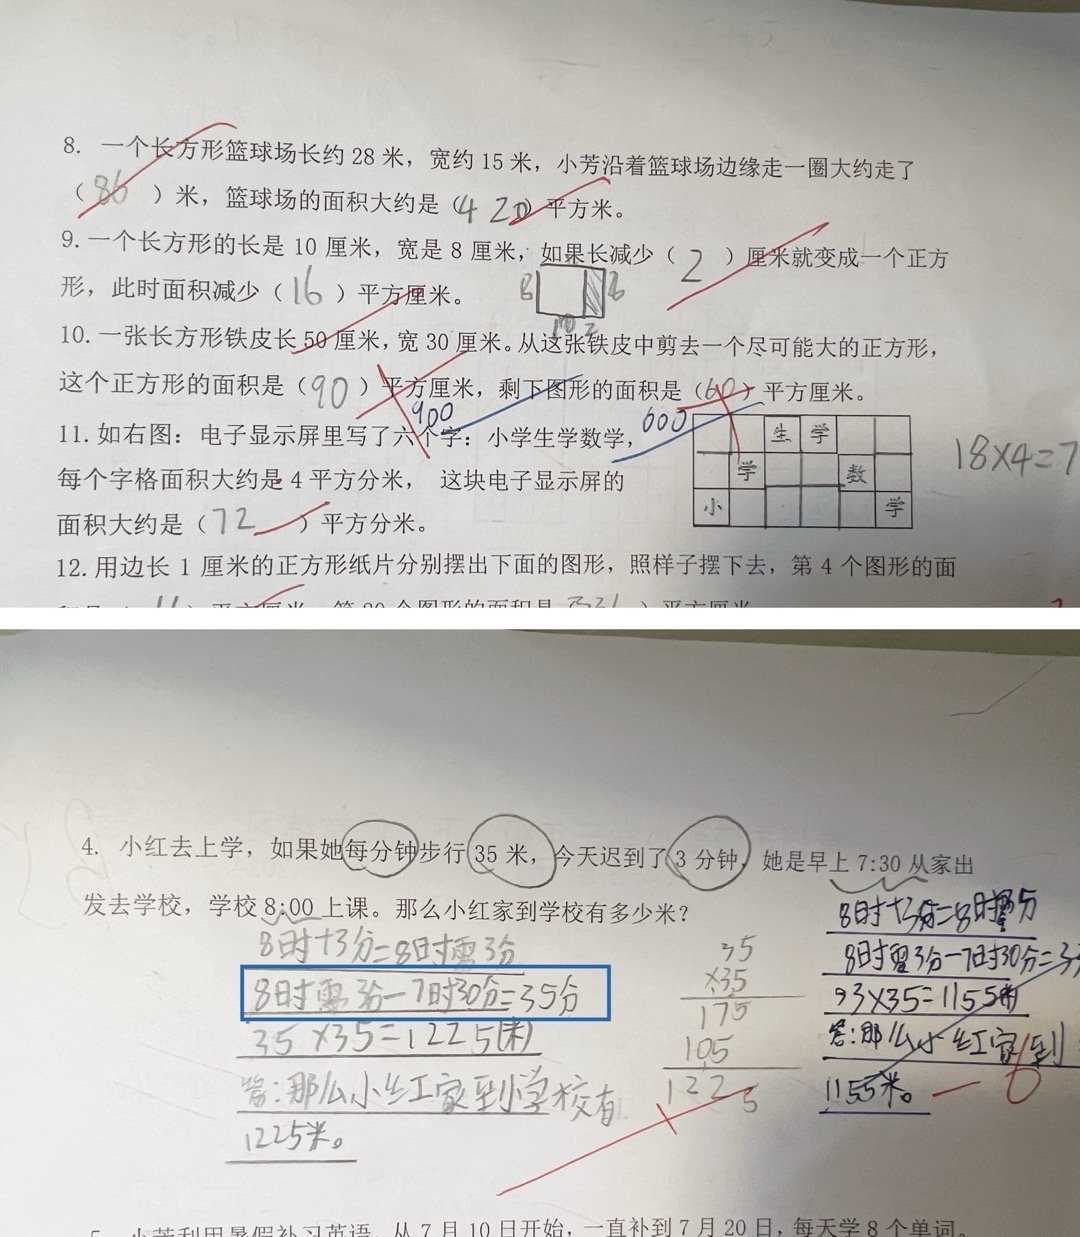 8. 一个长方形篮球场长约 28 米，宽约 15 米，小芳沿着篮球场边缘走一圈大约走了
（ 86 ）米，篮球场的面积大约是（420）平方米。
9. 一个长方形的长是 10 厘米，宽是 8 厘米，如果长减少（ 2 ）厘米就变成一个正方
形，此时面积减少（ 16 ）平方厘米。
8 8
10 2
10. 一张长方形铁皮长 50 厘米，宽 30 厘米。从这张铁皮中剪去一个尽可能大的正方形，
这个正方形的面积是（90 ）平方厘米，剩下图形的面积是（60）平方厘米。
900 600
11. 如右图：电子显示屏里写了六个字：小学生学数学，
每个字格面积大约是 4 平方分米， 这块电子显示屏的
面积大约是（72 ）平方分米。
生 学
学 数
小 学
18×4=7
12. 用边长 1 厘米的正方形纸片分别摆出下面的图形，照样子摆下去，第 4 个图形的面
4. 小红去上学，如果她每分钟步行 35 米，今天迟到了 3 分钟，她是早上 7:30 从家出
发去学校，学校 8:00 上课。那么小红家到学校有多少米？
8时+3分=8时零3分
8时零3分-7时30分=35分
35×35=1225(米)
答：那么小红家到小学校有
1225米。
35
×35
175
105
1225
8时+3分=8时零3分
8时零3分-7时30分=3
33×35=1155(米)
答：那么小红家到
1155米。
5. 小芳利用暑假补习英语，从 7 月 10 日开始，一直补到 7 月 20 日，每天学 8 个单词。